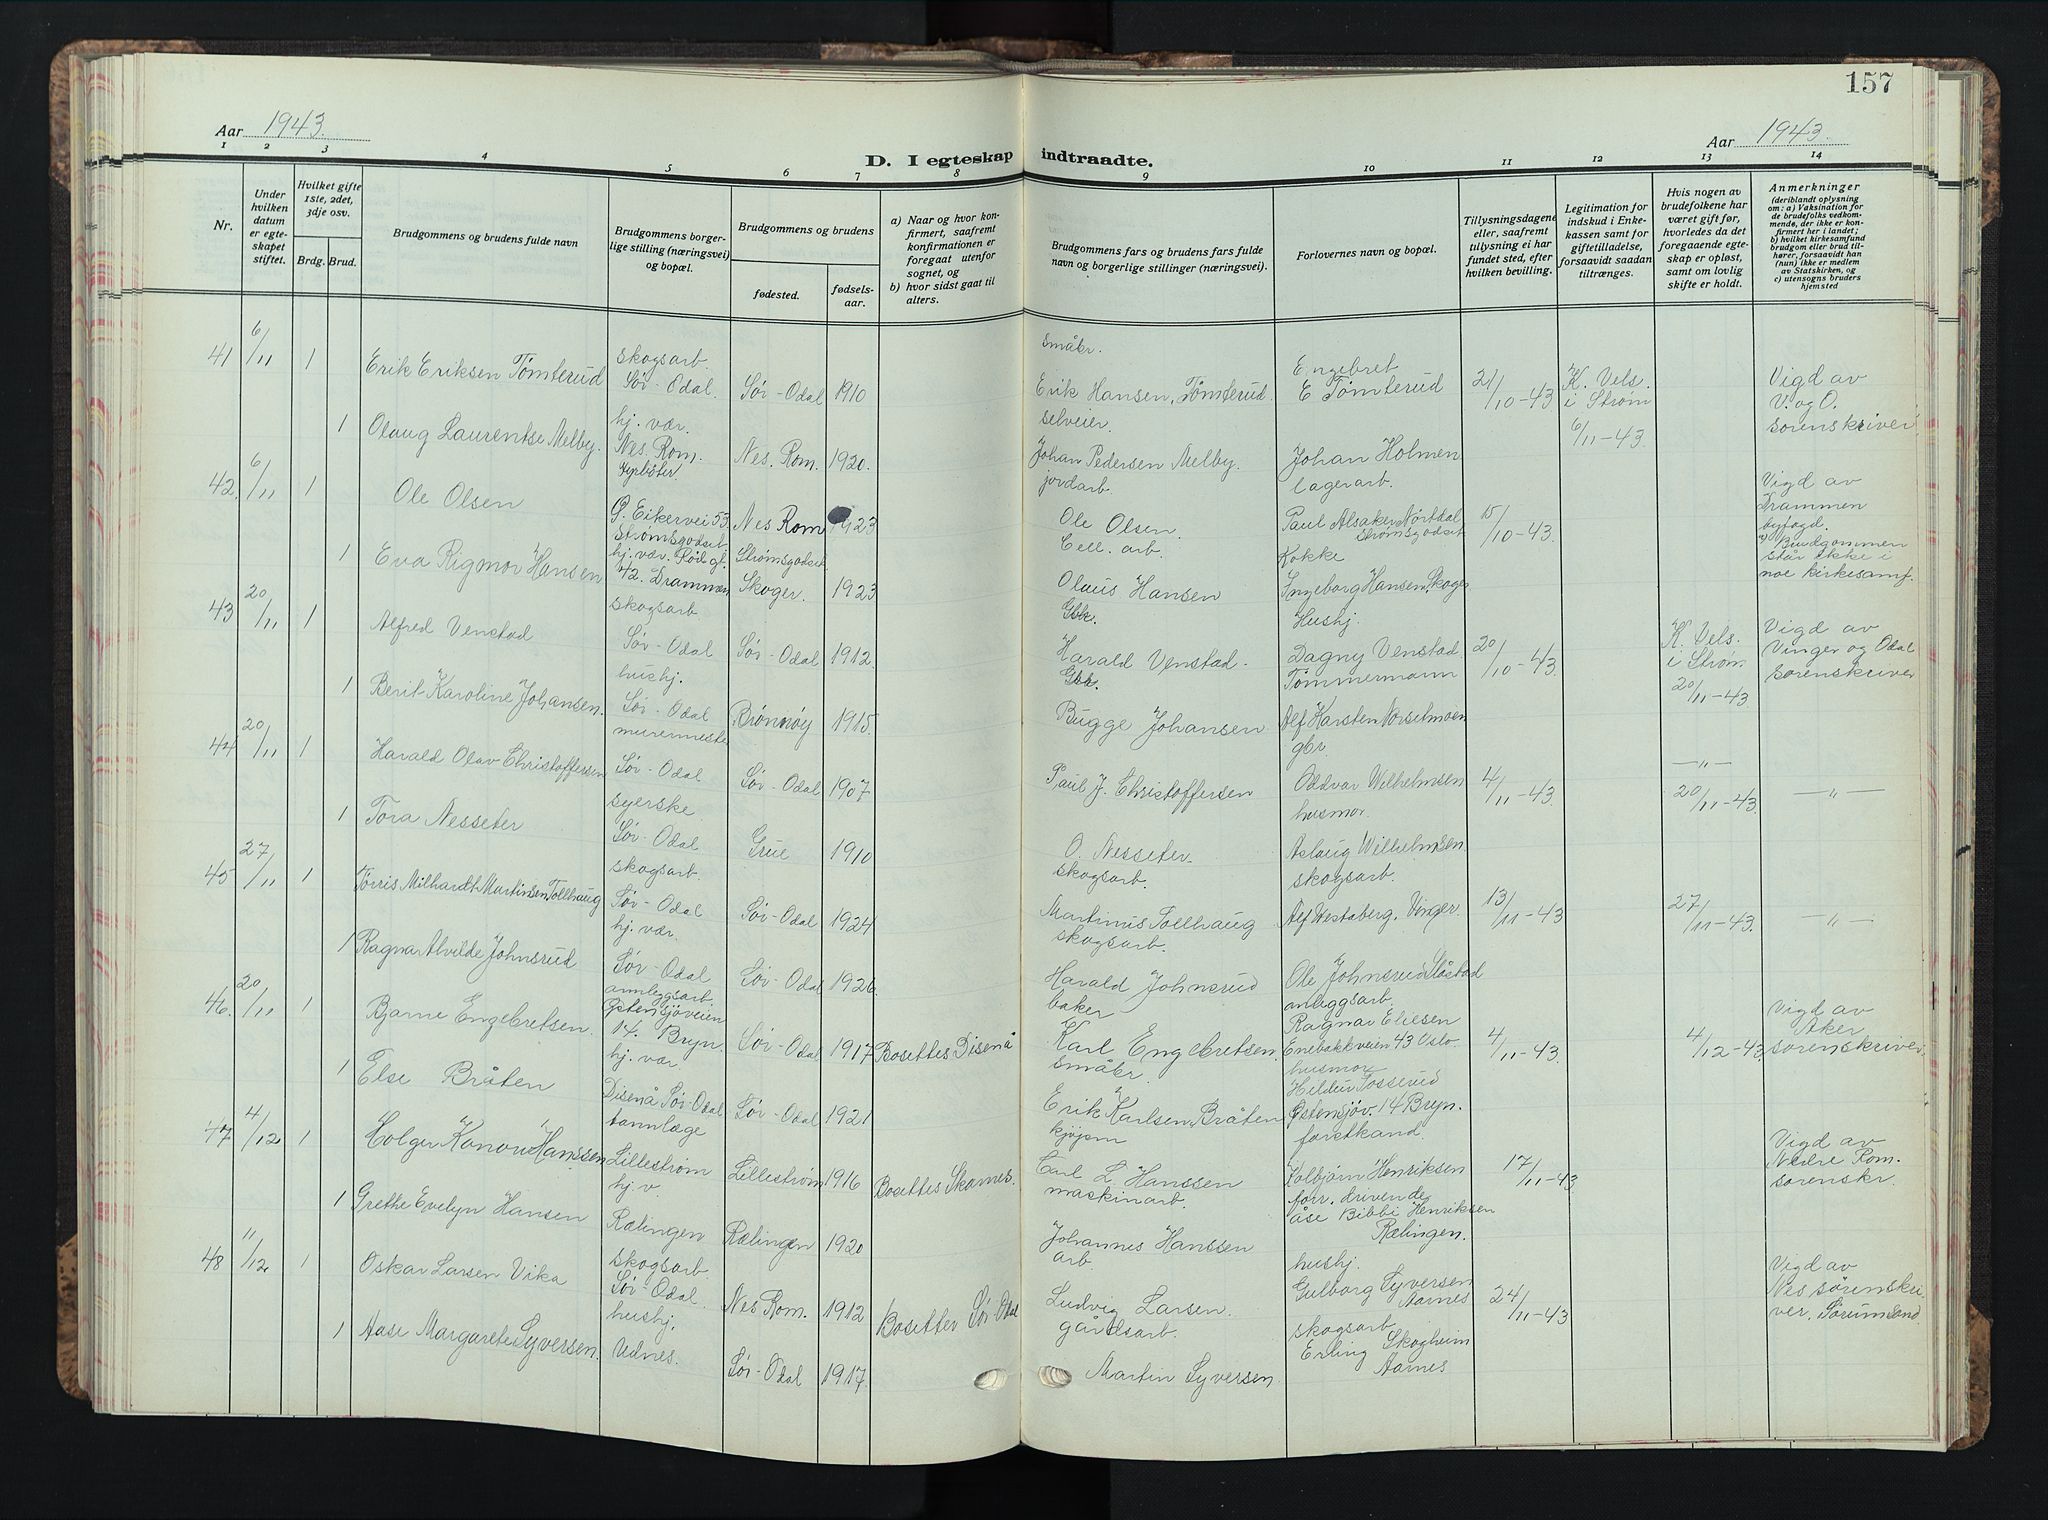 157
Aar 1943.
Aar 1943.
D. I egteskap indtraadte.
1 2 3 4 5 6 7 8 9 10 11 12 13 14
Nr.
Under hvilken datum er egteskapet stiftet.
Hvilket gifte 1ste, 2det, 3dje osv.
Brdg. Brud.
Brudgommens og brudens fulde navn
Brudgommens borgerlige stilling (næringsvei) og bopæl.
Brudgommens og brudens
fødested.
fødselsaar.
a) Naar og hvor konfirmert, saafremt konfirmationen er foregaat utenfor sognet, og
b) hvor sidst gaat til alters.
Brudgommens fars og brudens fars fulde navn og borgerlige stillinger (næringsvei).
Forlovernes navn og bopæl.
Tillysningsdagene eller, saafremt tillysning ei har fundet sted, efter hvilken bevilling.
Legitimation for indskud i Enkekassen samt for giftetilladelse, forsaavidt saadan tiltrænges.
Hvis nogen av brudefolkene har været gift før, hvorledes da det foregaaende egteskap er opløst, samt om lovlig skifte er holdt.
Anmerkninger (deriblandt oplysning om: a) Vaksination for de brudefolks vedkommende, der ikke er konfirmert her i landet; b) hvilket kirkesamfund brudgom eller brud tilhører, forsaavidt han (hun) ikke er medlem av Statskirken, og c) utensogns bruders hjemsted
41 6/11 1 Erik Eriksen Tømterud skogsarb. Sør-Odal. Sør-Odal 1910 småbr. Erik Hansen, Tømterud. Engebret E Tømterud 21/10-43 K. Vels. i Strøm 6/11-43 Vigd av V. og O. sorenskriver
1 Olaug Laurentse Melby. hj. vær. Nes. Rom. Nes. Rom. 1920. selveier. Johan Pedersen Melby. Johan Holmen
42. 6/11 1 Ole Olsen G. Eikervei 53 Strømsgodset Nes Rom 1923 jordarb. Ole Olsen. lagerarb. Paul Alsaker Strømsgodset 15/10-43 Vigd av Drammen byfogd. Brudgommen står ikke i noe kirkesamf.
1 Eva Rigmor Hansen hj. vær. 42. Drammen Strømsgodset Skoger. 1923 Cell. arb. Olaus Hansen Kokke Ingeborg Hansen, Skoger
43 20/11 1 Alfred Venstad skogsarb. Sør-Odal Sør-Odal 1912. Gbr. Harald Venstad. Hushj. Dagny Venstad 20/10-43 K. Vels. i Strøm 20/11-43 Vigd av Vinger og Odal sorenskriver
1 Berit Karoline Johansen. hushj. Sør-Odal Brønnøy 1915. Gbr. Bugge Johansen Tømmermann Alf Karsten Norselmoen
44 20/11 1 Harald Olav Christoffersen murermester Sør-Odal Sør-Odal 1907 Paul J. Christoffersen gbr. Oddvar Wilhelmsen 4/11-43 —"— 20/11-43 —"—
1 Tora Nesseter syerske Sør-Odal Grue 1910 O. Nesseter. husmor. Aslaug Wilhelmsen
45 27/11 1 Tørris Milhardt Martinsen Tollhaug skogsarb. Sør-Odal Sør-Odal 1924 skogsarb. Martinus Tollhaug skogsarb. Alf Westaberg, Vinger. 13/11-43 27/11-43 —"—
1 Ragna Alvilde Johnsrud hj. vær. Sør-Odal Sør-Odal 1926. skogsarb. Harald Johnsrud Ole Johnsrud Slåstad
46. 20/11 1 Bjarne Engebretsen. annleggsarb. Østensjöveien 14. Bryn. Sør-Odal 1917 Bosettes Disenå baker Karl Engebretsen anleggsarb. Ragnar Eliesen Enebakkveien 43 Oslo. 4/11-43 4/12-43 Vigd av Aker sorenskriver.
1 Else Bråten hj. vær. Disenå Sør-Odal Sør-Odal 1921 småbr. Erik Karlsen Bråten husmor Hildur Tosserud Østensjöv. 14 Bryn.
47 4/12 1 Holger Kanow Hanssen tannlæge Lillestrøm Lillestrøm 1916 Bosettes Skarnes. kjøpm Carl L. Hanssen forstkand. Kolbjørn Henriksen 17/11-43 Vigd av Nedre Rom. sorenskr.
1 Grethe Evelyn Hansen hj. v. Rælingen Rælingen 1920 maskinarb. Johannes Hanssen forr. drivende Åse Bibbi Henriksen Rælingen.
48 11/12. 1 Oskar Larsen Vika skogsarb. Sør-Odal. Nes Rom. 1912 Bosetter Sör Odal arb. Ludvig Larsen. hushj. Gulborg Syversen Aarnes 24/11-43 Vigd av Nes sørenskriver. Sørumsand
1 Aase Margarete Syversen. hushj. Udnes. Sør-Odal 1917. gårdsarb. Martin Syversen. skogsarb Erling Skogheim Aarnes